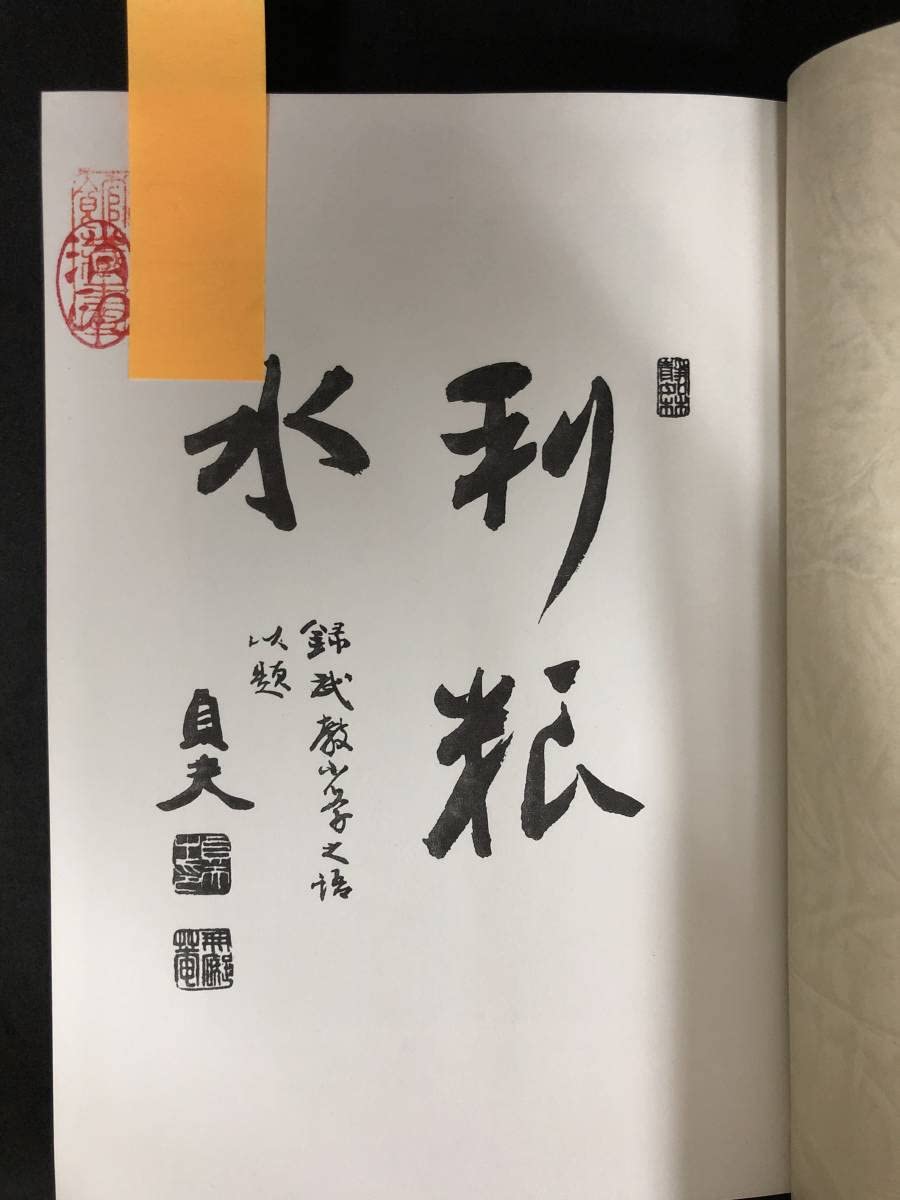 利粮
水
録武教小学之語
以題
貞夫